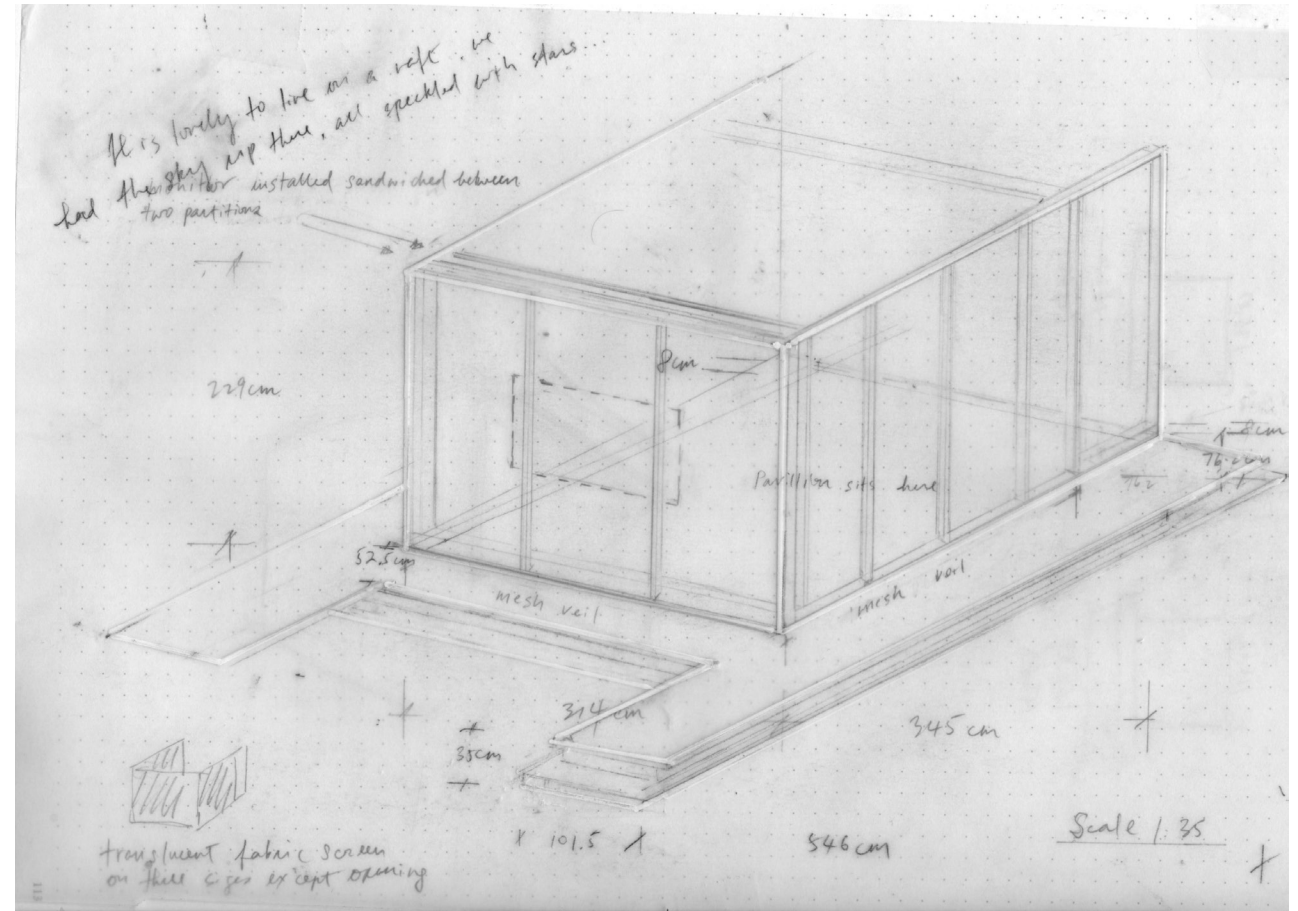 It is lovely to live on a raft. we
had the sky up there, all speckled with stars...
monitor installed sandwiched between
two partitions
229cm
8cm
8cm
76.2cm
762
Pavillion sits here
52.5cm
mesh veil
mesh veil
314cm
345cm
35cm
101.5
546cm
Scale 1:35
translucent fabric screen
on three sides except opening